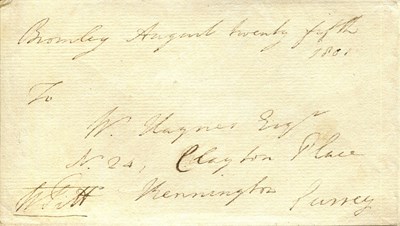 Bromley August twenty fifth
1801
To
W. Haynes Esqr
N. 24, Clayton Place
Kennington
Surrey
W. Pitt